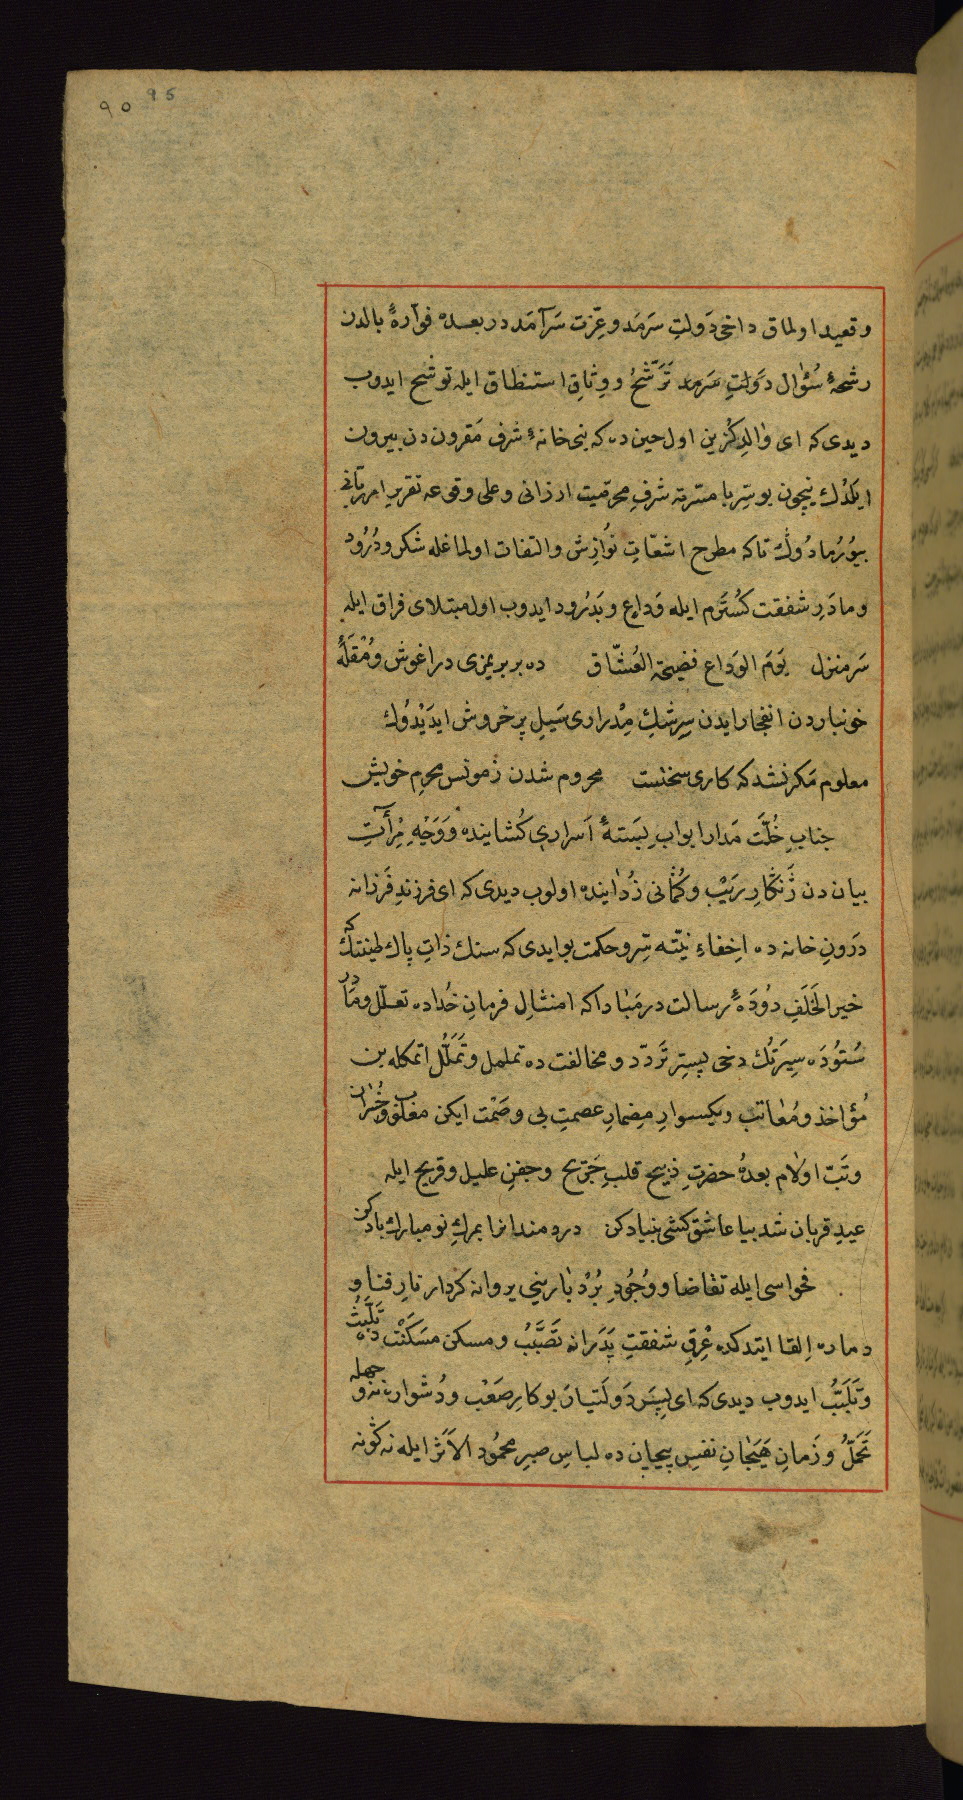 ٩٥ 95
وقعید اولماق داخی دَولتِ سَرمَد وعِزت سَرآمَد در بعده فوّارهٔ بالدن
رشحهٔ سُؤال دَولتِ سَرمد تَرَشّحُ ووِثاقِ استنطاق ایله توشیح ایدوب
دیدی که ای وٰالِدِ کُزین اول حین ده که بنی خانهٔ شرف مَقرون دن بیرون
ایکدُك نیچون بو سِرِ با مسّرته شرفِ محرمیت ارزانی وعلی وقوعه تقریرِ امرِ ربّانی
بیُورُمادُوڭ تا که مطرح اشعّاتِ نُوازِش والتفات اولماغله شکر ودُرُود
ومادَرِ شفقت کُستَرم ایله وَداع وبَدْرُود ایدوب اول مبتلای فراق ایله
سَرمنزل یَومَ الوَداع فضیحة العُشّاق ده بربریمزی در اغوش ومُقلَهٔ
خونباردن انفجار ایدن سِرِشكِ مِدْراری سَیلِ پر خروش ایدَیْدُوك
معلوم مَکر نشد که کاری سختست محروم شدن ز مونس محرمِ خویش
جنابِ خُلَّت مَدار ابوابِ بَستهٔ اَسراری کُشاینده وَوَجْهِ مِرْأتِ
بیان دن زَنكارِ رَیْب وکُمٰانی زُدٰاینده اولوب دیدی که ای فرزندِ فَرزانه
دَرونِ خانه ده اِخفاءِ نیّته سِّر وحکمت بو ایدی که سنك ذاتِ پاك طینتك که
خیر الخَلَفِ دُودَهٔ رسالت در مَبٰادا که امتثالِ فرمانِ خُدا ده تعلّل ومادر
سُتُودَه سِیرَتُك دخی بِسترِ تَردّد ومخالفت ده تململ وتَمَلُّل اتمکله بن
مُؤاخذ ومُعٰاتب ویکسوارِ مِضمارِ عصمتِ بی وصَمْت ایکن مغلوب وخُسْران
وتَبّ اولام بعدهُ حضرتِ ذبیح قلبِ جَرّیح وجفنِ علیل وقریح ایله
عیدِ قربان شد بیا عاشق کشی بنیاد کن دردمندانرا بمركِ نو مبارك باد کن
فحواسی ایله تقاضا ووُجُودِ بُرْدْبٰارینی پروانه کردار نارِ فنا و
دماره اِلقا ایتدکده عِرقِ شفقتِ پَدَرانه تَصَبَّبُ ومسکن مسَکَنْت ده تَلَبُّثُ
وتَلَبَّبُ ایدوب دیدی که ای پِسَرِ دَولَتیار بو کارِ صَعْب ودُشوار نه وجهله
تَحَمُّل وزَمانِ هَیَجٰانِ نفسِ پیچان ده لباسِ صبرِ محمُود اَلاَثَر ایله نه کُونه